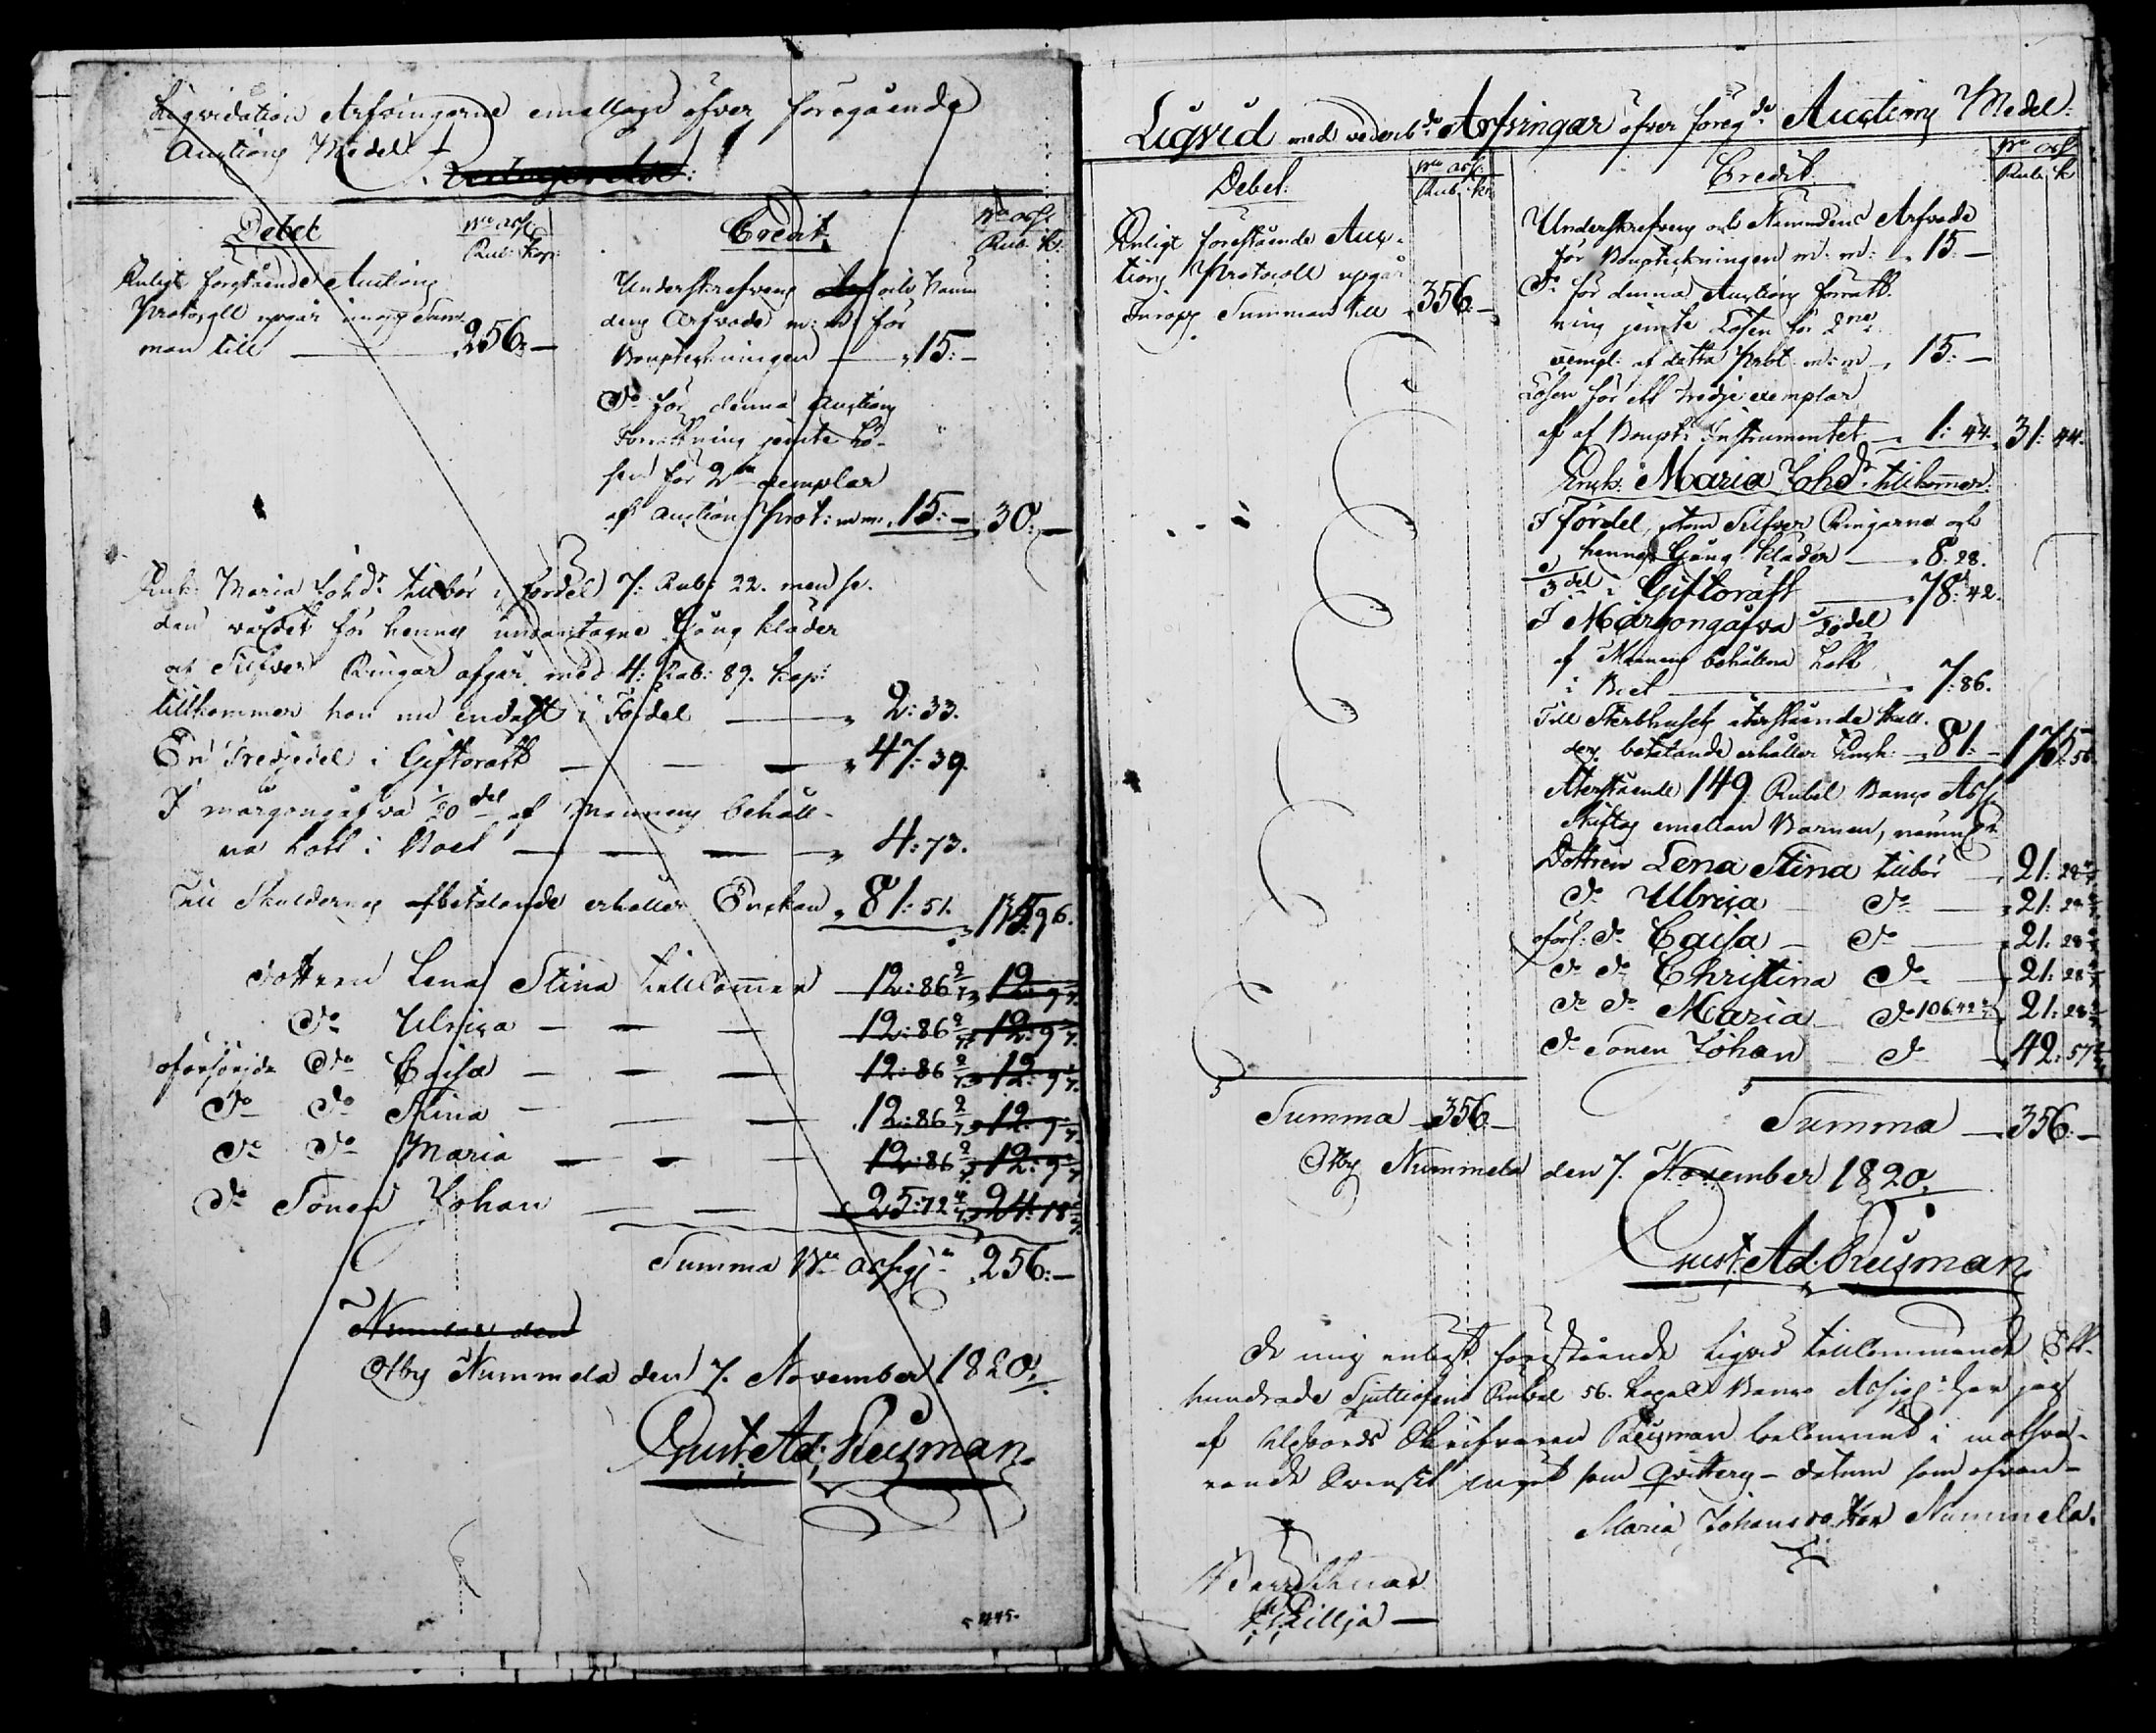 Liqvidation Arfvingarne emellan öfver föregående
Auctions Medel
Debet
Bco assg:
Rub: Kop:
Credit
Bco assg:
Rub: K:
Enligt förestående Auctions
Protocoll upgår inropps Sum-
man till 256:—
Underskrefvens och Nämn-
dens Arfvode m: m: för
Bouptekningen 15:—
Do för denna Auctions
Förrättning jemte Lö-
sen för 2ne exemplar
af Auction Prot: m m. 15:— 30:—
Enk: Maria Johdr tilbör i fördel 7: Rub: 22. men se-
dan värdet för hennes undantagne Gång kläder
och Silfver Ringar afgår med 4: Rub: 89. kop:
tillkommer hon nu endast i Fördel 2:33.
En Tredjedel i Giftorätt 47:39.
I morgongåfva 1/20 del af Mannens behåll-
na Lott i Boet 4:73.
Till Skuldernes afbetalande erhåller Enkan 81:51. 135:96.
Dottren Lena Stina tillkommer 12:86 2/7 12:9 1/7
Do Ulrica 12:86 2/7 12:9 1/7
oförsörjde Do Caisa 12:86 2/7 12:9 1/7
Do Do Stina 12:86 2/7 12:9 1/7
Do Do Maria 12:86 2/7 12:9 1/7
Do Sonen Johan 25:72 4/7 24:18 2/7
Summa Bco assign 256:—
Nummela den
Otby Nummela den 7. November 1820.
Gust: Ad: Reusman
445.
Liqvid med vederbde Arfvingar öfver föregde Auctions Medel:
Debet:
Bco assg:
Rub: K:
Credit
Bco assg
Rub: K
Enligt förestående Auc-
tions Protocoll upgår
Inropps Summan till 356:—
Underskrefvens och Nämndens Arfvode
för Bouptekningen m: m: 15:—
Do för denna Auctions förrätt-
ning jemte Lösen för 2ne
exempl: af detta Prot: m: m 15:—
Lösen för ett tredje exemplar
af Boupt: Instrumentet 1:44. 31:44.
Enk: Maria Johdr tillkommer:
I fördel, utom Silfver Ringarne och
hennes Gång kläder 8:28.
1/3 del i Giftorätt 78:42.
I Morgongåfva 1/20 del
af Mannens behållna Lott
i Boet 7:86.
Till Sterbhusets återstående skull-
ders betalande erhåller Enk: 81:— 175:56
Återstående 149 Rubel Banco Assg
skiftas emellan Barnen, nämnl:
Dottren Lena Stina tilbör 21:28 4/7
Do Ulrica Do 21:28 4/7
oförs: Do Caisa Do 21:28 4/7
Do Do Christina Do 21:28 4/7
Do Do Maria Do 106:42 6/7 21:28 4/7
Do Sonen Johan Do 42:57 1/7
Summa 356:—
Summa 356:—
Otby Nummela den 7. November 1820.
Gust: Ad: Reusman
De mig enligt förestående Liqvid tillkommande Ett-
hundrade Sjuttiofem Rubel 56. kopek Banco Assign: har jag
af Reusman bekommit i
som qvitteras datum som ofvan
Maria Johansdotter Nummela.